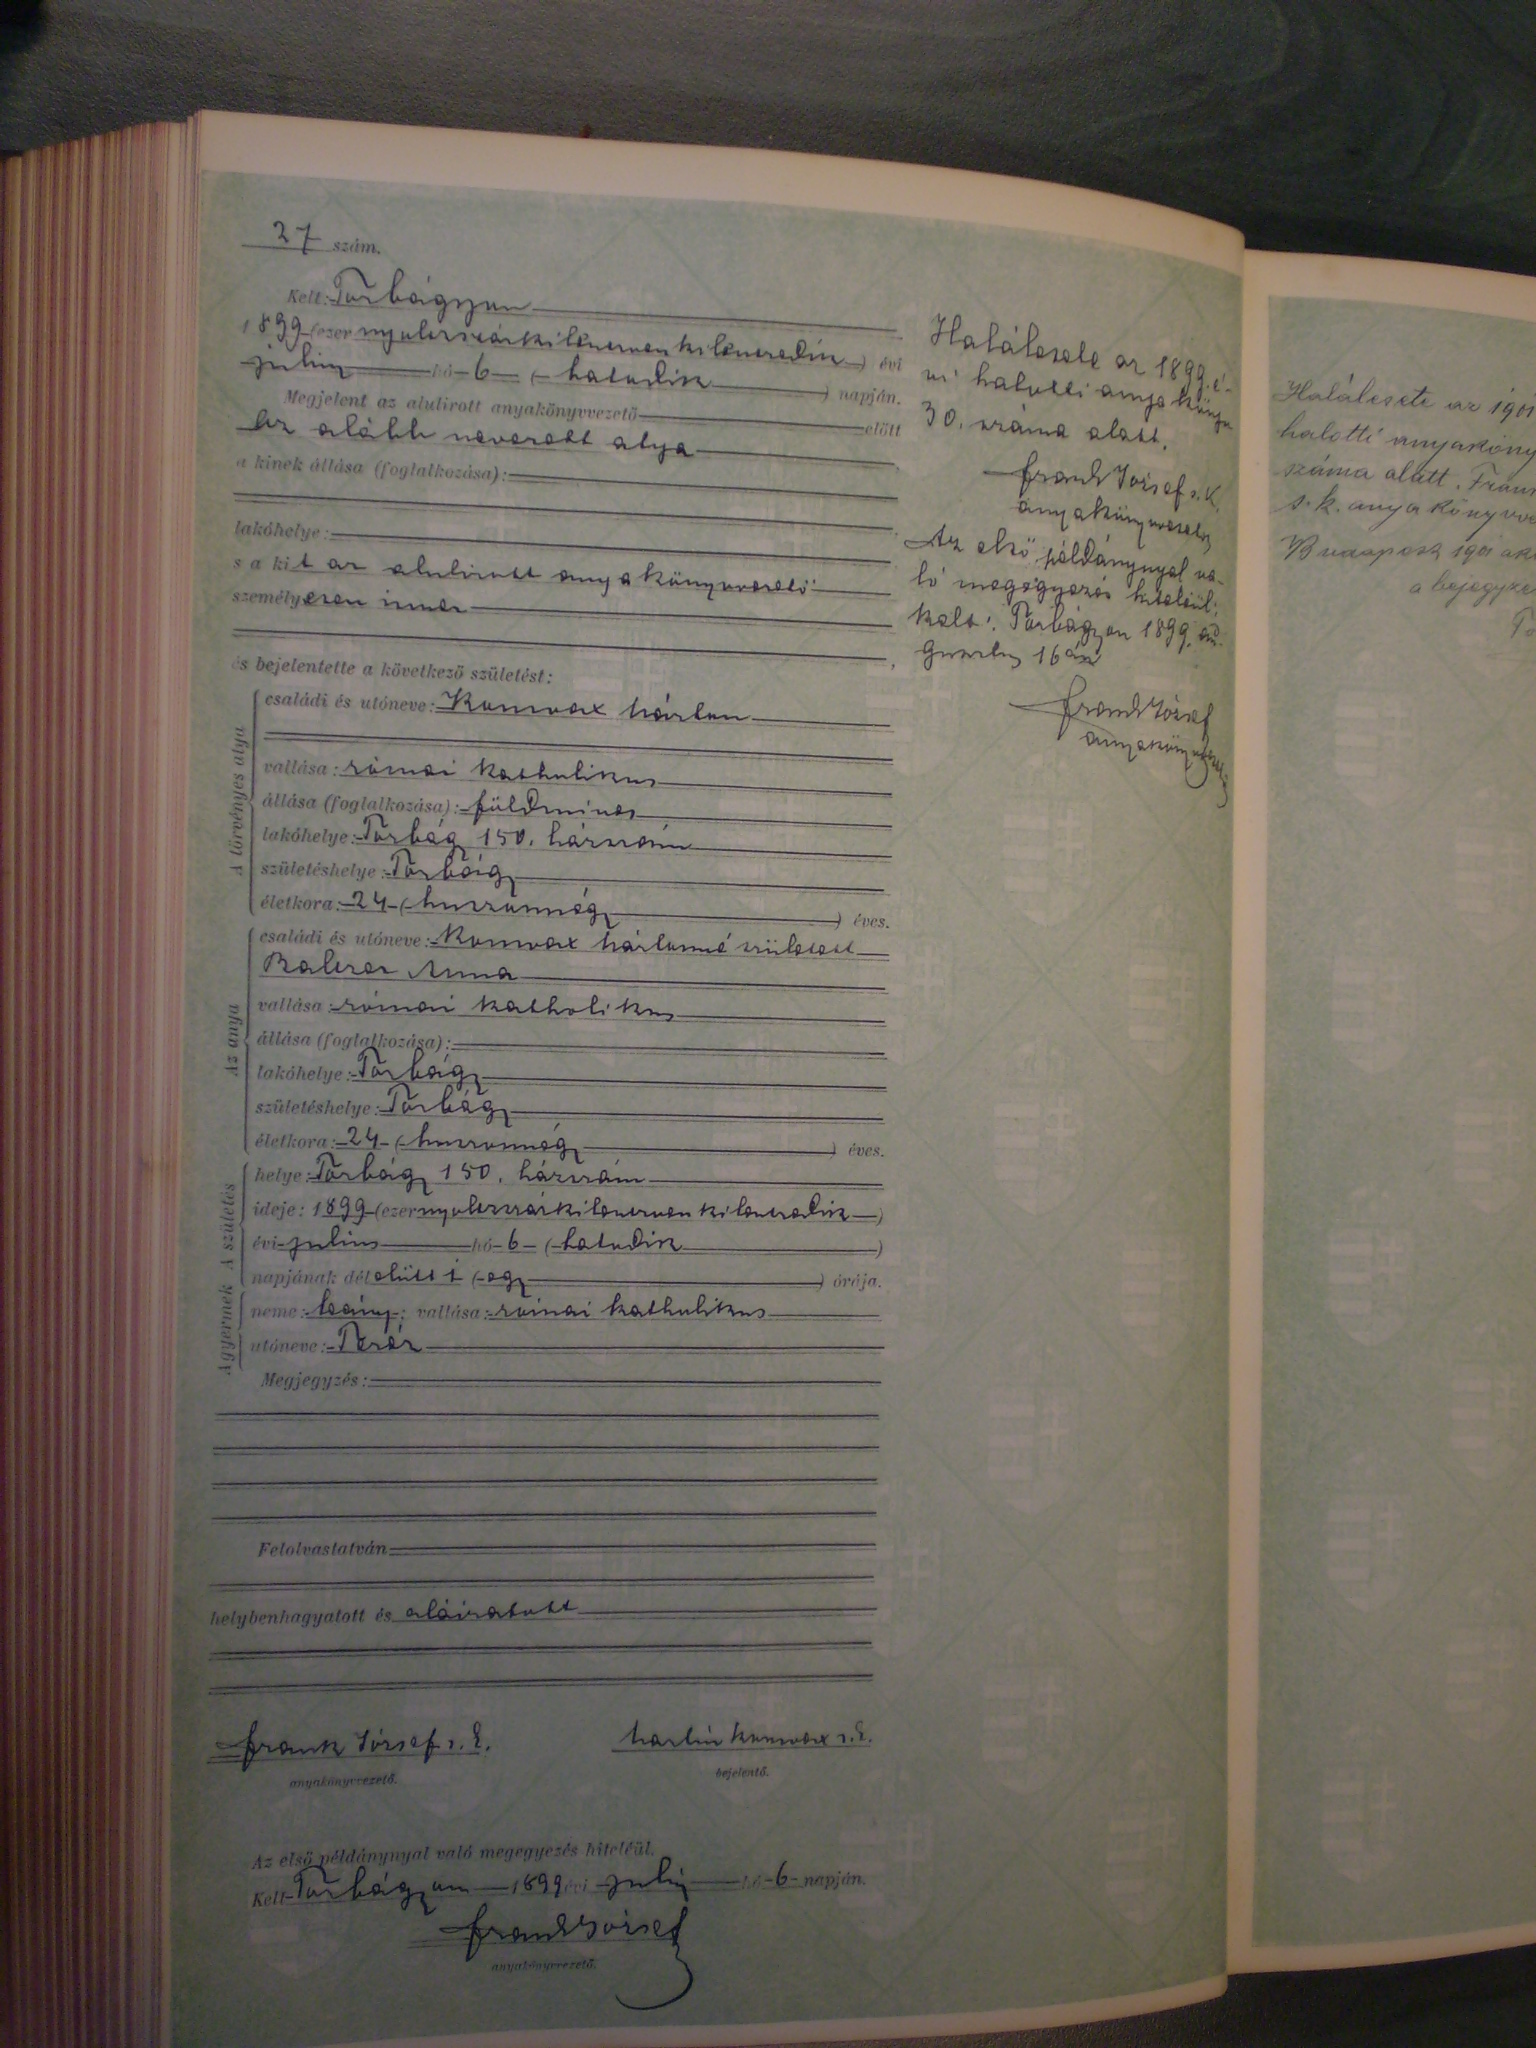 27 szám.
Kelt: Torbágyon
1899 (ezer nyolczszázkilenczvenkilenczedik) évi
julius hó 6 (hatodik) napján.
Megjelent az alulirott anyakönyvvezető előtt
az alább nevezett atya
a kinek állása (foglalkozása):
lakóhelye:
s a kit az alulirott anyakönyvvezető
személyesen ismer
és bejelentette a következő születést:
A törvényes atya
családi és utóneve: Márton
vallása: római katholikus
állása (foglalkozása): földmives
lakóhelye: Torbágy 150. házszám
születéshelye: Torbágy
életkora: 24 (huszonnégy) éves.
Az anya
családi és utóneve: Mártonné született
Balczer Anna
vallása: római katholikus
állása (foglalkozása):
lakóhelye: Torbágy
születéshelye: Torbágy
életkora: 24 (huszonnégy) éves.
A születés
helye: Torbágy 150. házszám
ideje: 1899 (ezer nyolczszázkilenczvenkilenczedik)
évi julius hó 6 (hatodik)
napjának délelőtt 1 (egy) órája.
A gyermek
neme: leány; vallása: római katholikus
utóneve: Teréz
Megjegyzés:
Felolvastatván
helybenhagyatott és aláiratott
Frank József s. k.
anyakönyvvezető.
Martin s. k.
bejelentő.
Az első példánynyal való megegyezés hiteléül.
Kelt Torbágyon 1899 évi julius hó 6 napján.
Frank József
anyakönyvvezető.
Halálesete az 1899. é-
vi halotti anyakönyv
30. száma alatt.
Frank József s. k.
anyakönyvvezető
Az első példánynyal va-
ló megegyezés hiteléül:
Kelt: Torbágyon 1899. au-
gusztus 16án
Frank József
anyakönyvvezető
Halálesete az 1901
halotti anyaköny
száma alatt. Fran
s. k. anyakönyvve
Budapest 1901
a bejegyzé